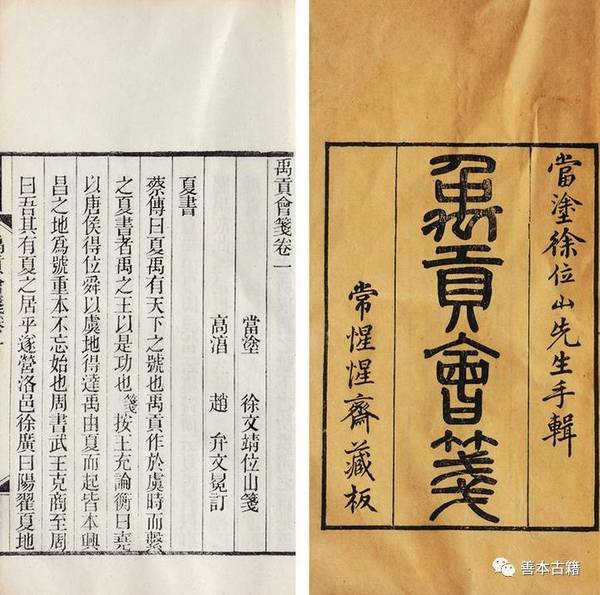 當塗徐位山先生手輯
禹貢會箋
常惺惺齋藏板
禹貢會箋卷一
當塗 徐文靖位山箋
高淯 趙弁文冕訂
夏書
蔡傳曰夏禹有天下之號也禹貢作於虞時而繫
之夏書者禹之王以是功也箋按王充論衡曰堯
以唐侯得位舜以虞地得達禹由夏而起皆本興
昌之地爲號重本不忘始也周書武王克商至周
曰吾其有夏之居乎遂營洛邑徐廣曰陽翟夏地
善本古籍